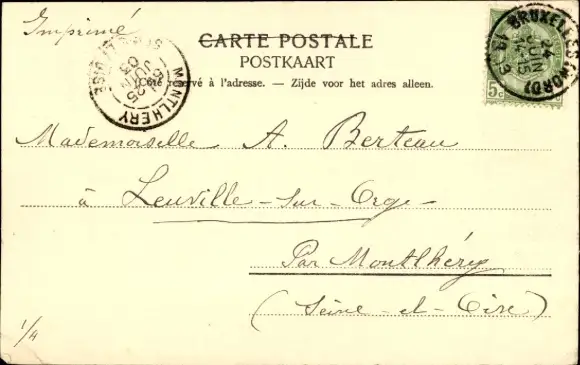 Imprimé
CARTE POSTALE
POSTKAART
(Côté réservé à l'adresse. — Zijde voor het adres alleen.
MONTLHERY
25
JUIN
03
BRUXELLES (NORD)
24
JUIN
5c
Mademoiselle A. Berteau
à Leuville-sur-Orge-
Par Montlhéry
(Seine-et-Oise)
1/4